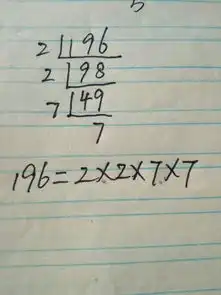 5
2 196
2 98
7 49
7
196=2×2×7×7